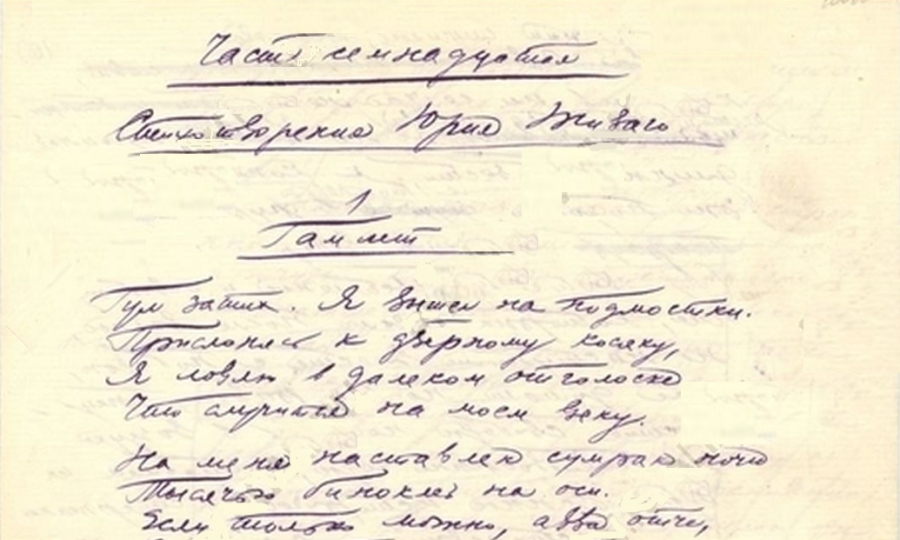 Часть семнадцатая
Стихотворения Юрия Живаго
1
Гамлет
Гул затих. Я вышел на подмостки.
Прислонясь к дверному косяку,
Я ловлю в далеком отголоске
Что случится на моем веку.
На меня наставлен сумрак ночи
Тысячью биноклей на оси.
Если только можно, авва отче,